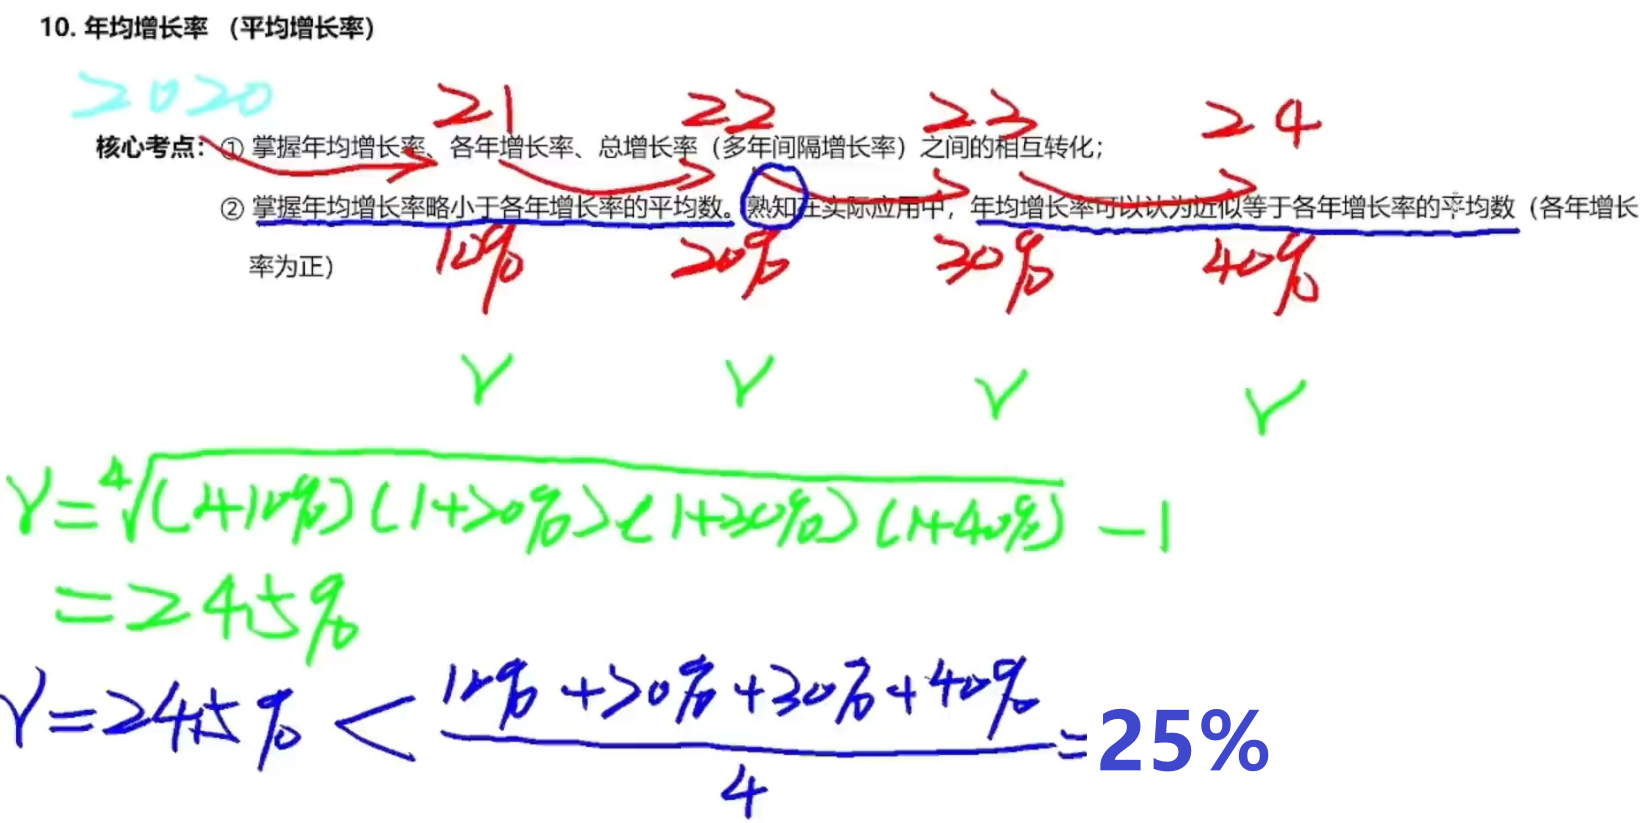 10. 年均增长率 （平均增长率）
2020 21 22 23 24
核心考点：① 掌握年均增长率、各年增长率、总增长率（多年间隔增长率）之间的相互转化；
② 掌握年均增长率略小于各年增长率的平均数。熟知在实际应用中，年均增长率可以认为近似等于各年增长率的平均数（各年增长
率为正）
10% 20% 30% 40%
r r r r
r=⁴√(1+10%)(1+20%)(1+30%)(1+40%) -1
=24.5%
r=24.5% < (10%+20%+30%+40%)/4 = 25%